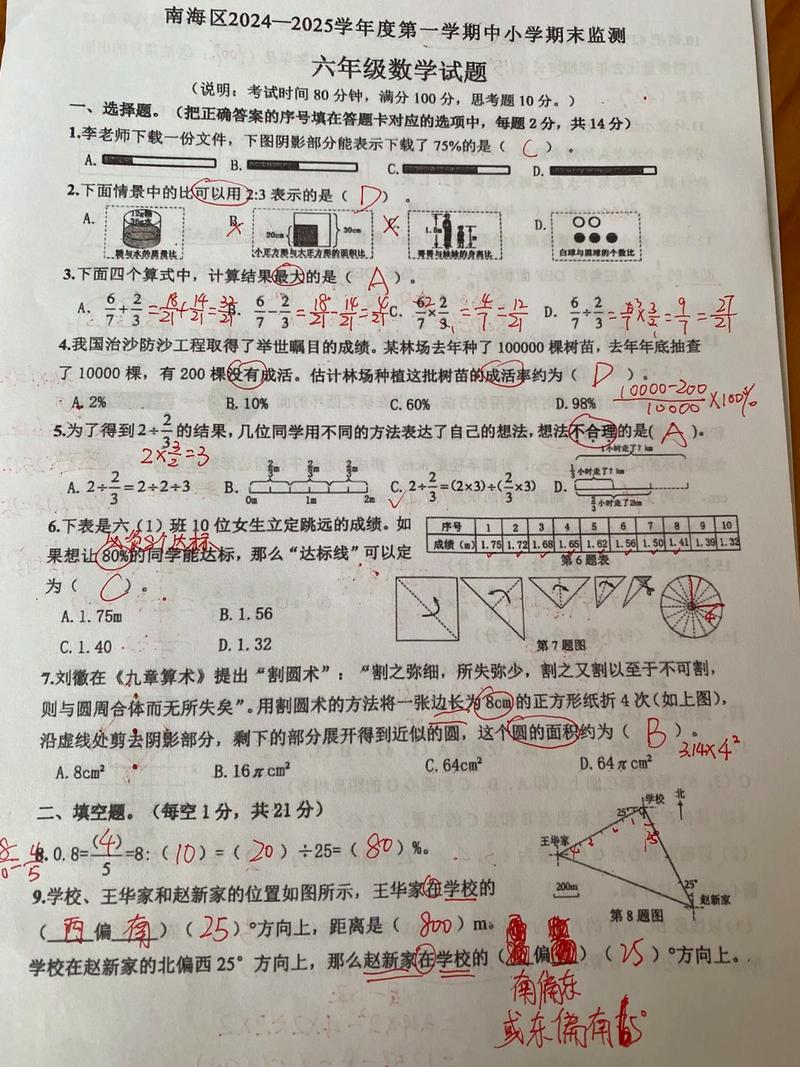 南海区2024—2025学年度第一学期中小学期末监测
六年级数学试题
（说明：考试时间80分钟，满分100分，思考题10分。）
一、选择题。（把正确答案的序号填在答题卡对应的选项中，每题2分，共14分）
1.李老师下载一份文件，下图阴影部分能表示下载了75%的是（ C ）。
A. B. C. D.
2.下面情景中的比可以用2:3表示的是（ D ）。
A. B. C. D.
12g糖
36g水
20cm 30cm
1.5m
糖与水的质量比 小正方形与大正方形的面积比 哥哥与妹妹的身高比 白球与黑球的个数比
3.下面四个算式中，计算结果最大的是（ A ）。
A. 6/7+2/3=18/21+14/21=32/21 B. 6/7-2/3=18/21-14/21=4/21 C. 6/7×2/3=4/7=12/21 D. 6/7÷2/3=6/7×3/2=9/7=27/21
4.我国治沙防沙工程取得了举世瞩目的成绩。某林场去年种了100000棵树苗，去年年底抽查
了10000棵，有200棵没有成活。估计林场种植这批树苗的成活率约为（ D ）。
A. 2% B. 10% C. 60% D. 98% 10000-200/10000×100%
5.为了得到2÷2/3的结果，几位同学用不同的方法表达了自己的想法，想法不合理的是( A )。
2×3/2=3
1小时走了？km
1/3小时走了？km
A. 2÷2/3=2÷2÷3 B. 2/3m 2/3m 2/3m C. 2÷2/3=(2×3)÷(2/3×3) D.
0m 1m 2m 2/3小时走了2km
6.下表是六（1）班10位女生立定跳远的成绩。如
序号 1 2 3 4 5 6 7 8 9 10
成绩（m） 1.75 1.72 1.68 1.65 1.62 1.56 1.50 1.41 1.39 1.32
第6题表
果想让80%的同学能达标，那么“达标线”可以定
为（ C ）。
A. 1.75m B. 1.56
C. 1.40 D. 1.32
4
第7题图
7.刘徽在《九章算术》提出“割圆术”：“割之弥细，所失弥少，割之又割以至于不可割，
则与圆周合体而无所失矣”。用割圆术的方法将一张边长为8cm的正方形纸折4次（如上图），
沿虚线处剪去阴影部分，剩下的部分展开得到近似的圆，这个圆的面积约为（ B ）。
3.14×4²
A. 8cm² B. 16πcm² C. 64cm² D. 64πcm²
二、填空题。（每空1分，共21分）
8. 0.8=(4)/5=8:（10）=（20）÷25=（80）%。
学校 北
25°
25°
王华家
200m
25°
赵新家
第8题图
9.学校、王华家和赵新家的位置如图所示，王华家在学校的
（西偏南）（25）°方向上，距离是（800）m。
学校在赵新家的北偏西25°方向上，那么赵新家在学校的（ 偏 ）（25）°方向上。
南偏东
或东偏南65°